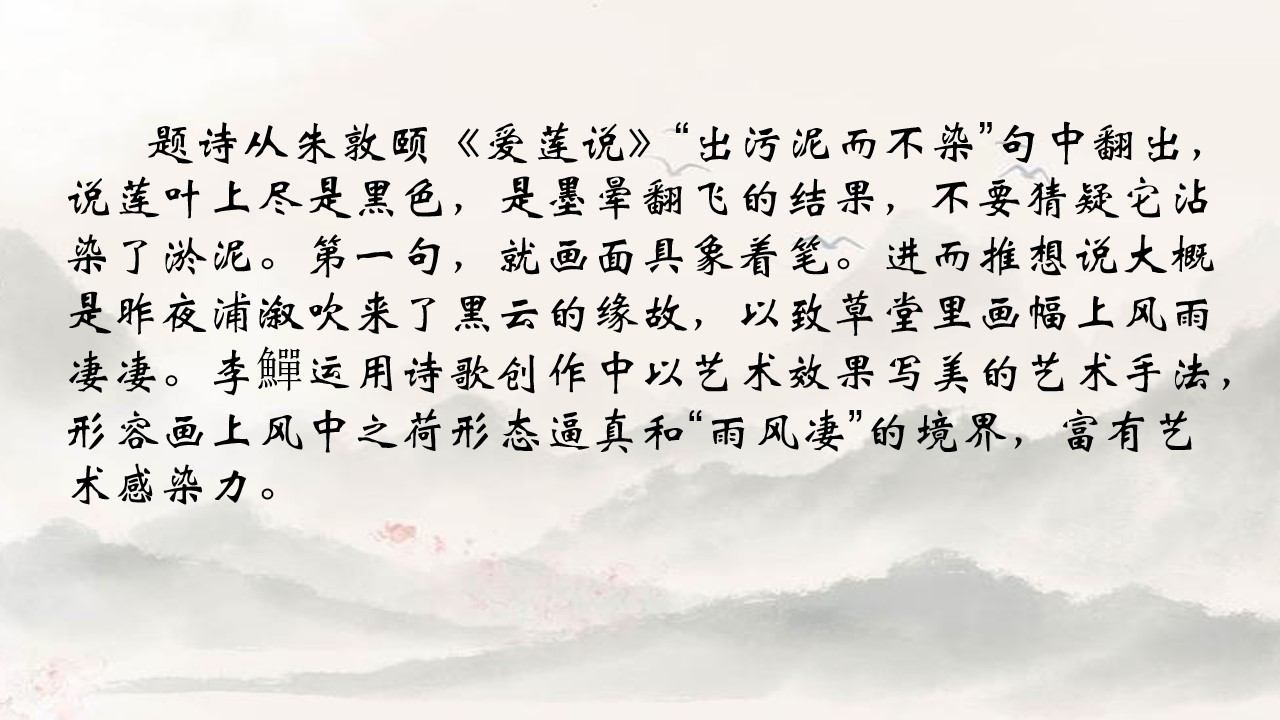 题诗从朱敦颐《爱莲说》“出污泥而不染”句中翻出，
说莲叶上尽是黑色，是墨晕翻飞的结果，不要猜疑它沾
染了淤泥。第一句，就画面具象着笔。进而推想说大概
是昨夜浦溆吹来了黑云的缘故，以致草堂里画幅上风雨
凄凄。李鱓运用诗歌创作中以艺术效果写美的艺术手法，
形容画上风中之荷形态逼真和“雨风凄”的境界，富有艺
术感染力。